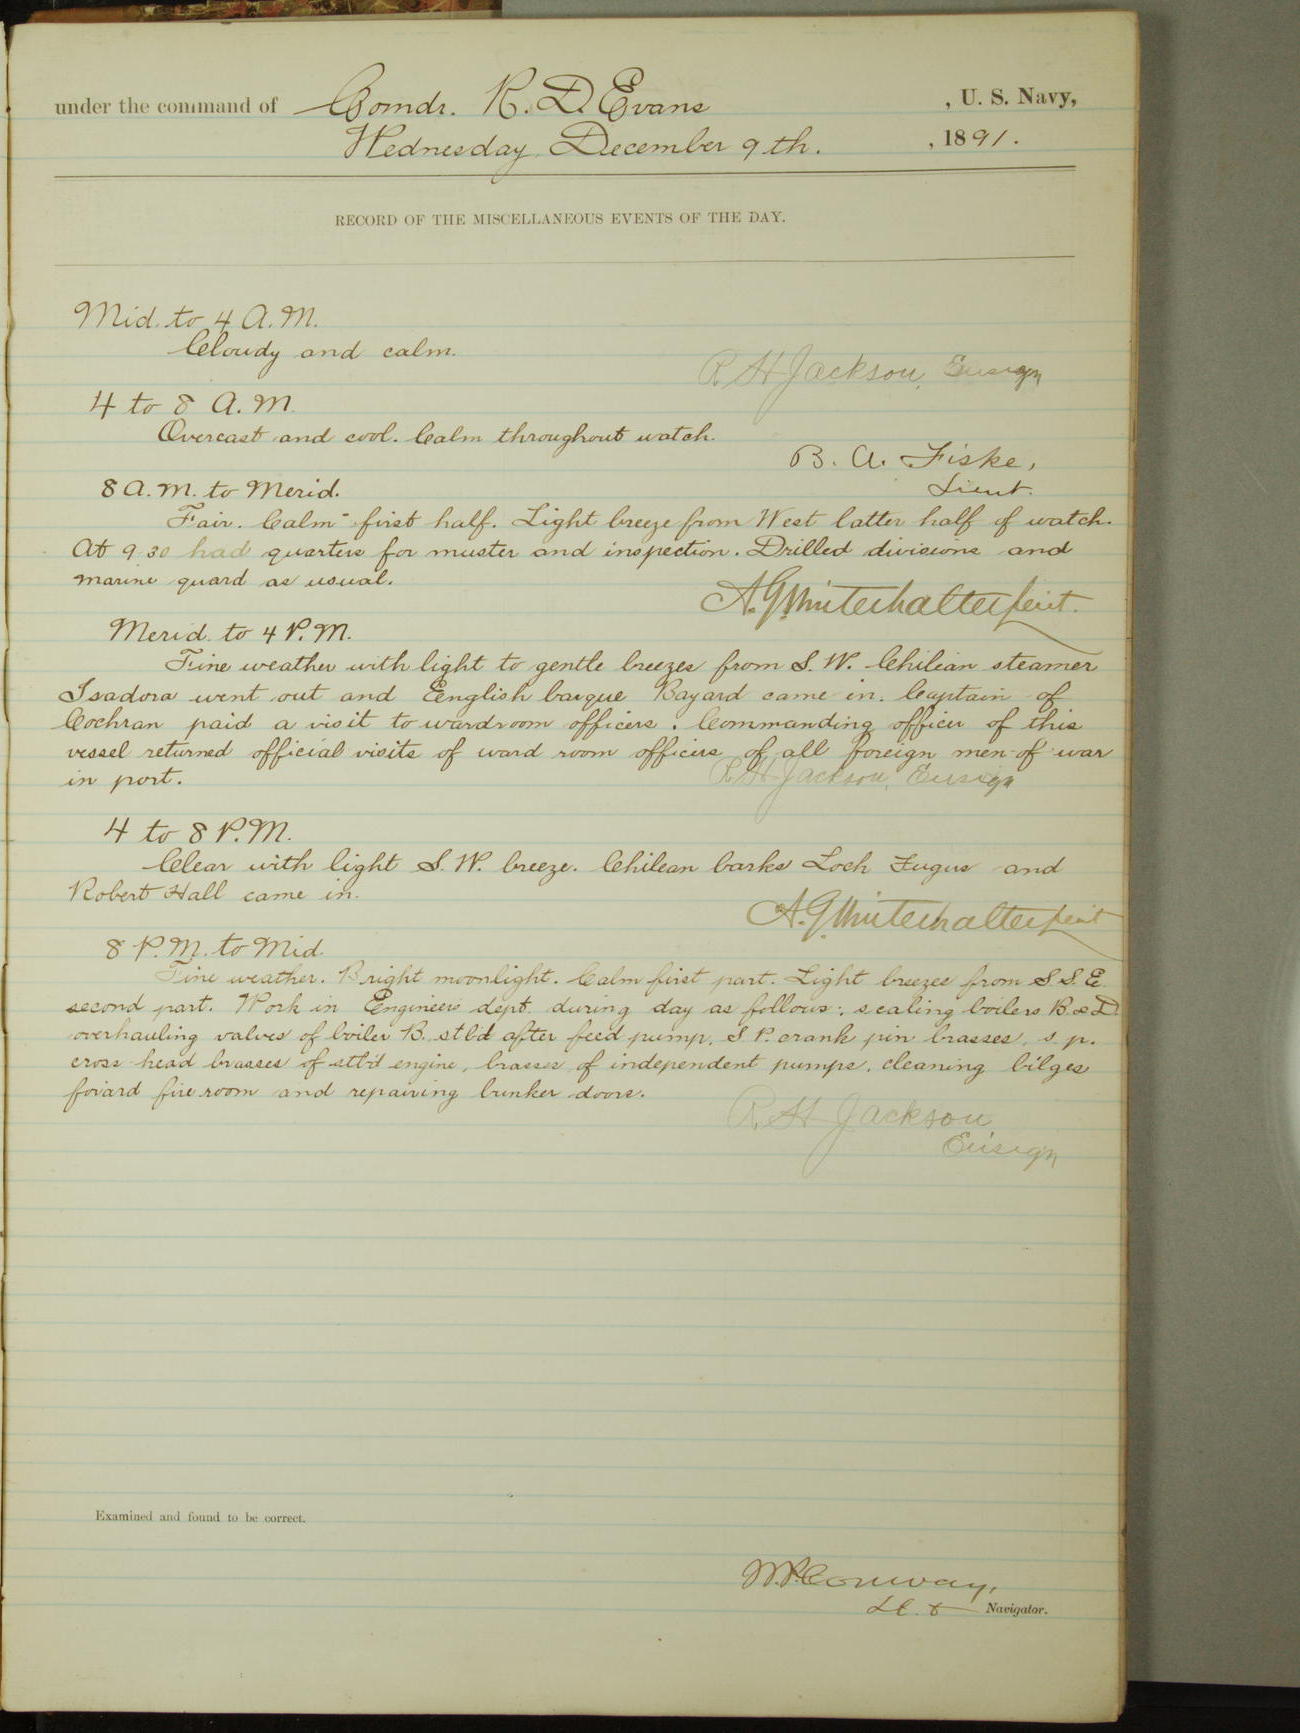 under the command of Comdr. R. D. Evans , U. S. Navy,
Wednesday, December 9th. , 1891.
RECORD OF THE MISCELLANEOUS EVENTS OF THE DAY.
Mid. to 4 A.M.
Cloudy and calm.
R H Jackson, Ensign
4 to 8 A.M.
Overcast and cool. Calm throughout watch.
B. A. Fiske,
Lieut.
8 A.M. to Merid.
Fair. Calm first half. Light breeze from West latter half of watch.
At 9 30 had quarters for muster and inspection. Drilled divisions and
marine guard as usual.
A.G. Winterhalter Lieut.
Merid. to 4 P.M.
Fine weather with light to gentle breezes from S. W. Chilian steamer
Isadora went out and English barque Bayard came in. Captain of
Cochran paid a visit to wardroom officers. Commanding officer of this
vessel returned official visits of ward room officers of all foreign men-of-war
in port.
R H Jackson, Ensign
4 to 8 P.M.
Clear with light S. W. breeze. Chilean barks Loch Fugus and
Robert Hall came in.
A.G. Winterhalter Lieut
8 P.M. to Mid.
Fine weather. Bright moonlight. Calm first part. Light breezes from S.S.E.
second part. Work in Engineers dept. during day as follows: scaling boilers B & D
overhauling valves of boiler B. stb'd after feed pump, S. P. crank pin brasses, s. p.
cross head brasses of stb'd engine, brasses of independent pumps, cleaning bilges
forard fire room and repairing bunker doors.
R. H Jackson
Ensign
Examined and found to be correct.
W.P. Conway,
Navigator.